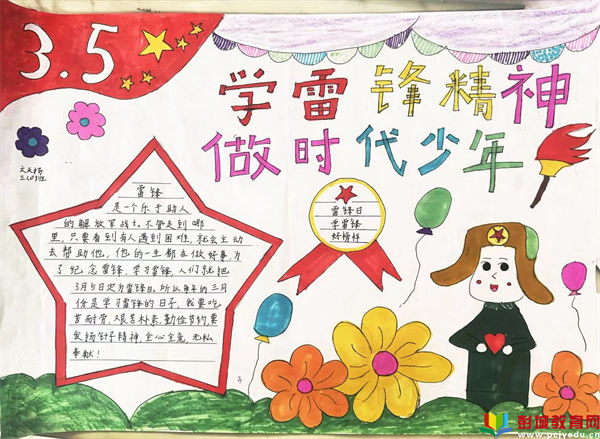 3.5
学雷锋精神
做时代少年
三(4)班
雷锋
是一个乐于助人
的解放军战士,不管走到哪
里,只要看到有人遇到困难,就会主动
去帮助他。他的一生都在做好事,为
了纪念雷锋,学习雷锋,人们就把
3月5日定为雷锋日。所以每年的三月
份是学习雷锋的日子,我要吃
苦耐劳,艰苦朴素,勤俭节约,要
发扬钉子精神,全心全意,无私
奉献!
雷锋日
学雷锋
好榜样
彭城教育网
www.pcjyedu.cn